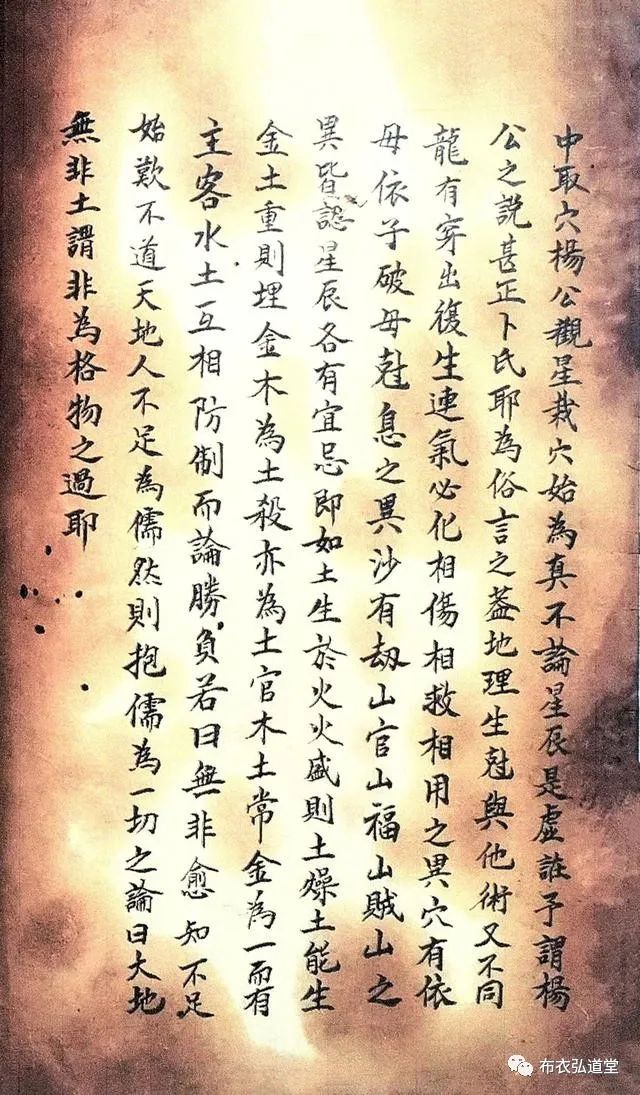 中取穴楊公觀星栽穴始為真不論星辰是虛誑予謂楊
公之説甚正卜氏耶為俗言之葢地理生尅與他術又不同
龍有穿出復生連氣必化相傷相救相用之異穴有依
母依子破母尅息之異沙有刼山官山福山賊山之
異皆認星辰各有宜忌即如土生於火火盛則土燥土能生
金土重則埋金木為土殺亦為土官木土常金為一而有
主客水土互相防制而論勝負若曰無非愈知不足
始歎不道天地人不足為儒然則抱儒為一切之論曰大地
無非土謂非為格物之過耶
布衣弘道堂